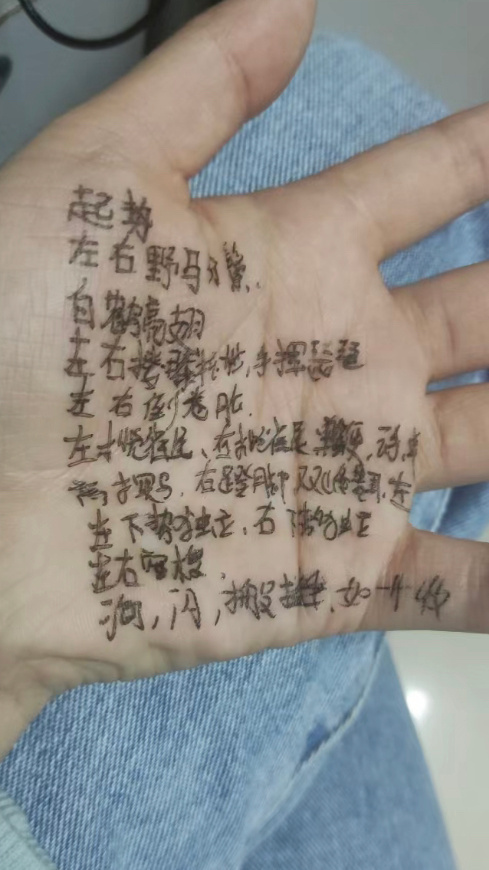 起势
左右野马分鬃.
白鹤亮翅
左右搂膝拗步,手挥琵琶
左右倒卷肱.
左揽雀尾、右揽雀尾 单鞭,云手
高探马,右蹬脚 双峰贯耳,左
左下势独立,右下势独立
左右穿梭.
海,闪,搬拦捶、如